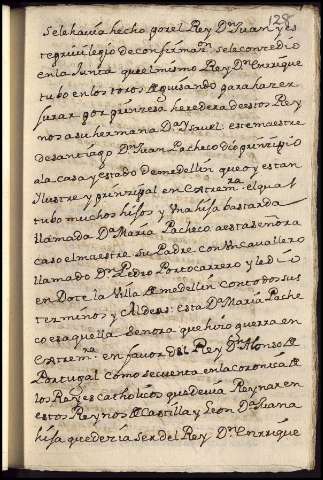 128
sele havia hecho por el Rey Dn Juan y es
te privilegio de confirmazn sele concedio
en la Junta que el mismo Rey Dn Enrrique
tubo en los toros de guisando para hazer
jurar por prinzesa heredera destos Rey
nos a su hermana Da Ysavel: este maestre
de santiago Dn Juan Pacheco dio prinzipio
ala casa y estado de medellin que oy es tan
Ylustre y prinzipal en Extremra. el qual
tubo muchos hijos y Vna hija bastarda
llamada Da Maria Pacheco. a esta señora
caso el maestre su Padre con Vn cavallero
llamado Dn Pedro Portocarrero y le dio
en Dote la Villa de medellin con todos sus
terminos y Aldeas: esta Da Maria Pache
co es aquella señora que hizo guerra en
Extremra. en favor del Rey Dn Alonso de
Portugal como se cuenta en la coronica de
los Reyes catholicos que devia Reynar en
estos Reynos de Castilla y Leon Da Juana
hija que dezia ser del Rey Dn Enrrique